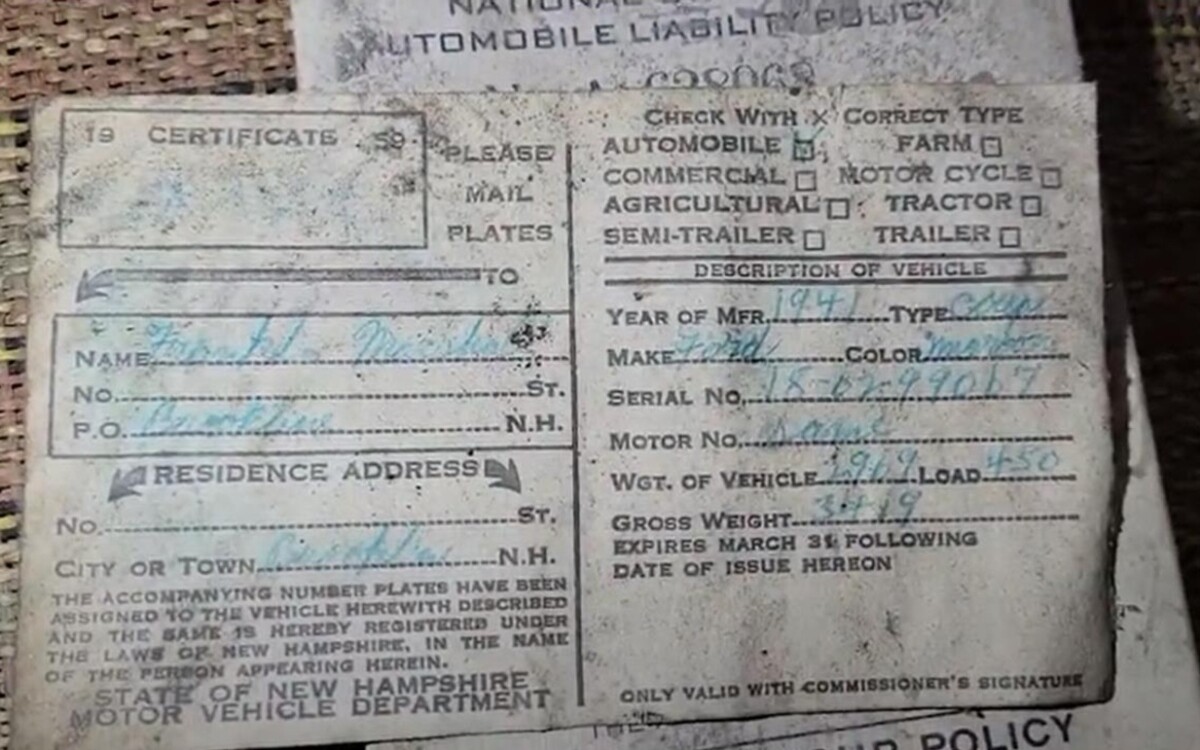 NATIONAL
AUTOMOBILE LIABILITY POLICY
19 CERTIFICATE 59
PLEASE
MAIL
PLATES
TO
NAME
No. St.
P.O. Brookline N.H.
RESIDENCE ADDRESS
No. St.
CITY OR TOWN Brookline N.H.
THE ACCOMPANYING NUMBER PLATES HAVE BEEN
ASSIGNED TO THE VEHICLE HEREWITH DESCRIBED
AND THE SAME IS HEREBY REGISTERED UNDER
THE LAWS OF NEW HAMPSHIRE, IN THE NAME
OF THE PERSON APPEARING HEREIN.
STATE OF NEW HAMPSHIRE
MOTOR VEHICLE DEPARTMENT
CHECK WITH X CORRECT TYPE
AUTOMOBILE FARM
COMMERCIAL MOTOR CYCLE
AGRICULTURAL TRACTOR
SEMI-TRAILER TRAILER
DESCRIPTION OF VEHICLE
YEAR OF MFR. 1941 TYPE
MAKE Ford COLOR maroon
SERIAL NO. 18-6299067
MOTOR NO. Same
WGT. OF VEHICLE 2969 LOAD 450
GROSS WEIGHT 3419
EXPIRES MARCH 31 FOLLOWING
DATE OF ISSUE HEREON
ONLY VALID WITH COMMISSIONER'S SIGNATURE
POLICY